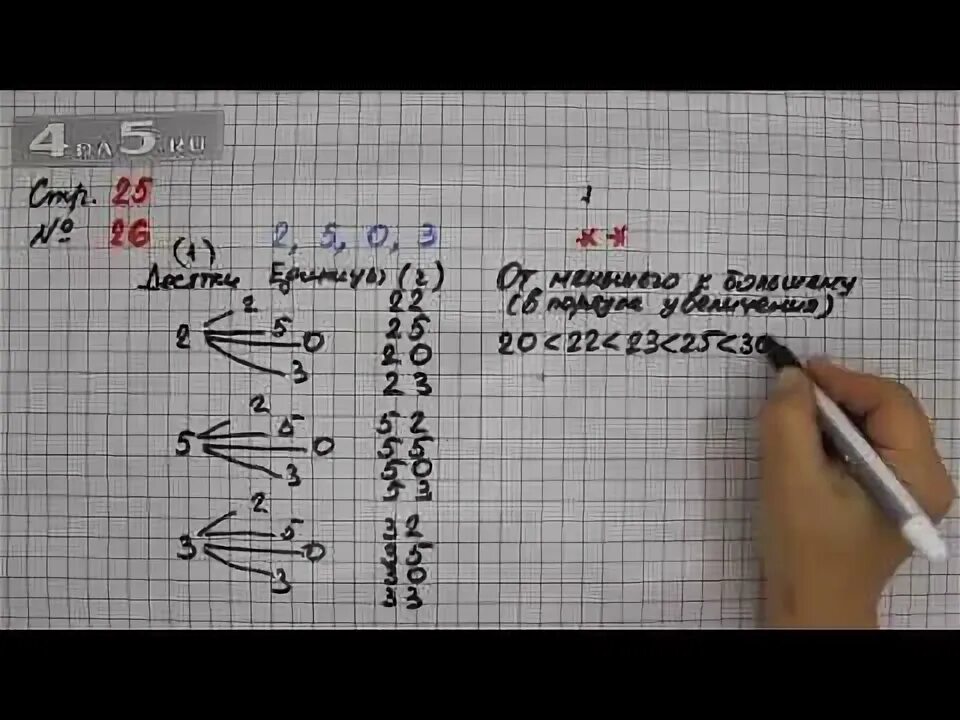 4 на 5.ru
Стр. 25
№ 26
2, 5, 0, 3
* *
(1)
Десятки Единицы (2)
2
2
5
0
3
22
25
20
23
5
2
5
0
3
52
55
50
53
3
2
5
0
3
32
35
30
33
От меньшего к большему
(В порядке увеличения)
20<22<23<25<30